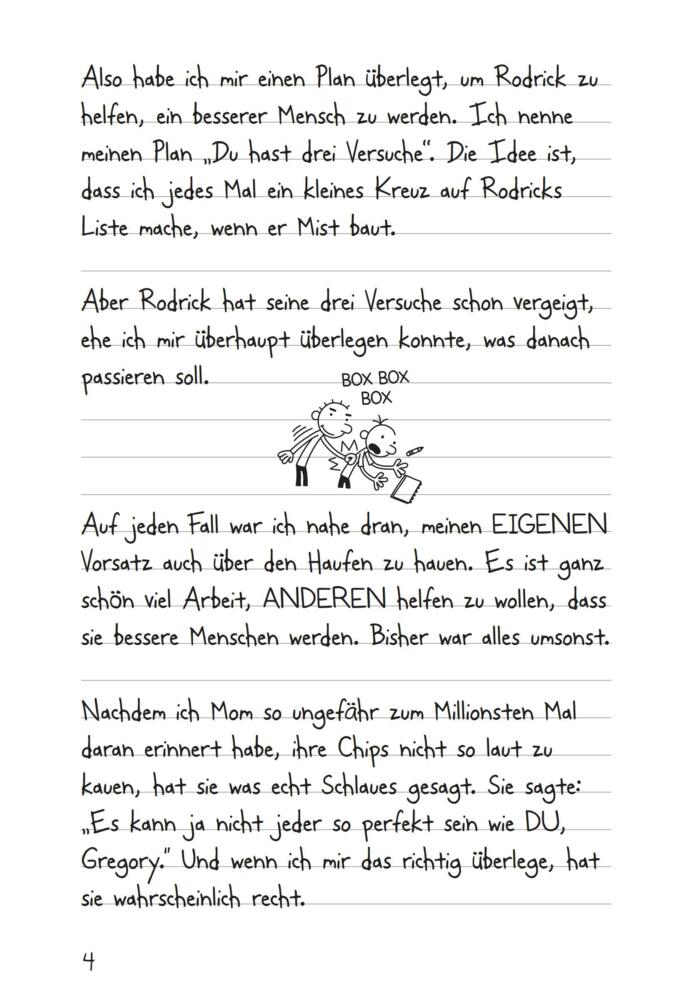 Also habe ich mir einen Plan überlegt, um Rodrick zu
helfen, ein besserer Mensch zu werden. Ich nenne
meinen Plan „Du hast drei Versuche“. Die Idee ist,
dass ich jedes Mal ein kleines Kreuz auf Rodricks
Liste mache, wenn er Mist baut.
Aber Rodrick hat seine drei Versuche schon vergeigt,
ehe ich mir überhaupt überlegen konnte, was danach
passieren soll.
BOX BOX
BOX
Auf jeden Fall war ich nahe dran, meinen EIGENEN
Vorsatz auch über den Haufen zu hauen. Es ist ganz
schön viel Arbeit, ANDEREN helfen zu wollen, dass
sie bessere Menschen werden. Bisher war alles umsonst.
Nachdem ich Mom so ungefähr zum Millionsten Mal
daran erinnert habe, ihre Chips nicht so laut zu
kauen, hat sie was echt Schlaues gesagt. Sie sagte:
„Es kann ja nicht jeder so perfekt sein wie DU,
Gregory.“ Und wenn ich mir das richtig überlege, hat
sie wahrscheinlich recht.
4